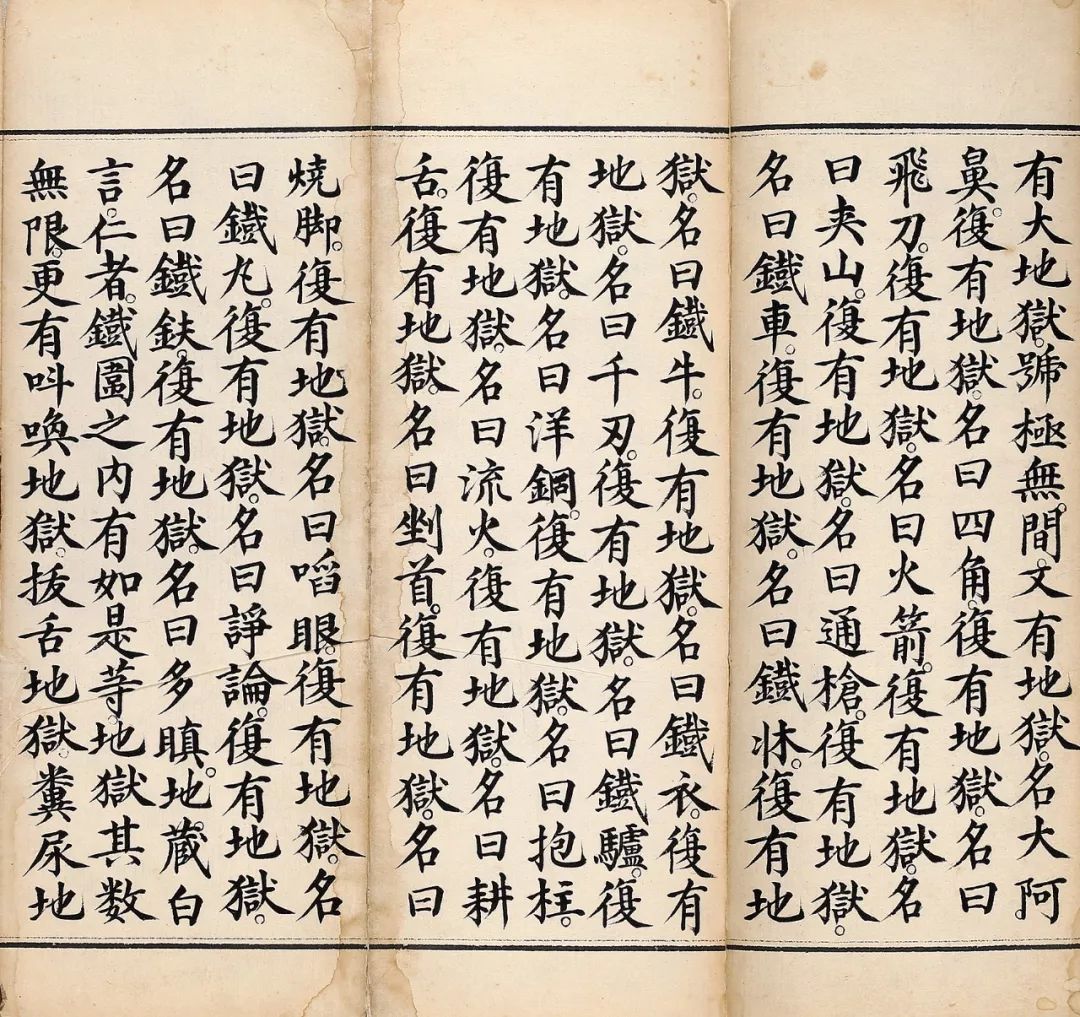 有大地獄。號極無間。又有地獄。名大阿
鼻。復有地獄。名曰四角。復有地獄。名曰
飛刀。復有地獄。名曰火箭。復有地獄。名
曰夾山。復有地獄。名曰通槍。復有地獄。
名曰鐵車。復有地獄。名曰鐵牀。復有地
獄。名曰鐵牛。復有地獄。名曰鐵衣。復有
地獄。名曰千刃。復有地獄。名曰鐵驢。復
有地獄。名曰洋銅。復有地獄。名曰抱柱。
復有地獄。名曰流火。復有地獄。名曰耕
舌。復有地獄。名曰剉首。復有地獄。名曰
燒脚。復有地獄。名曰啗眼。復有地獄。名
曰鐵丸。復有地獄。名曰諍論。復有地獄。
名曰鐵鈇。復有地獄。名曰多瞋。地藏白
言。仁者。鐵圍之内有如是等。地獄其数
無限。更有叫喚地獄。拔舌地獄。糞尿地